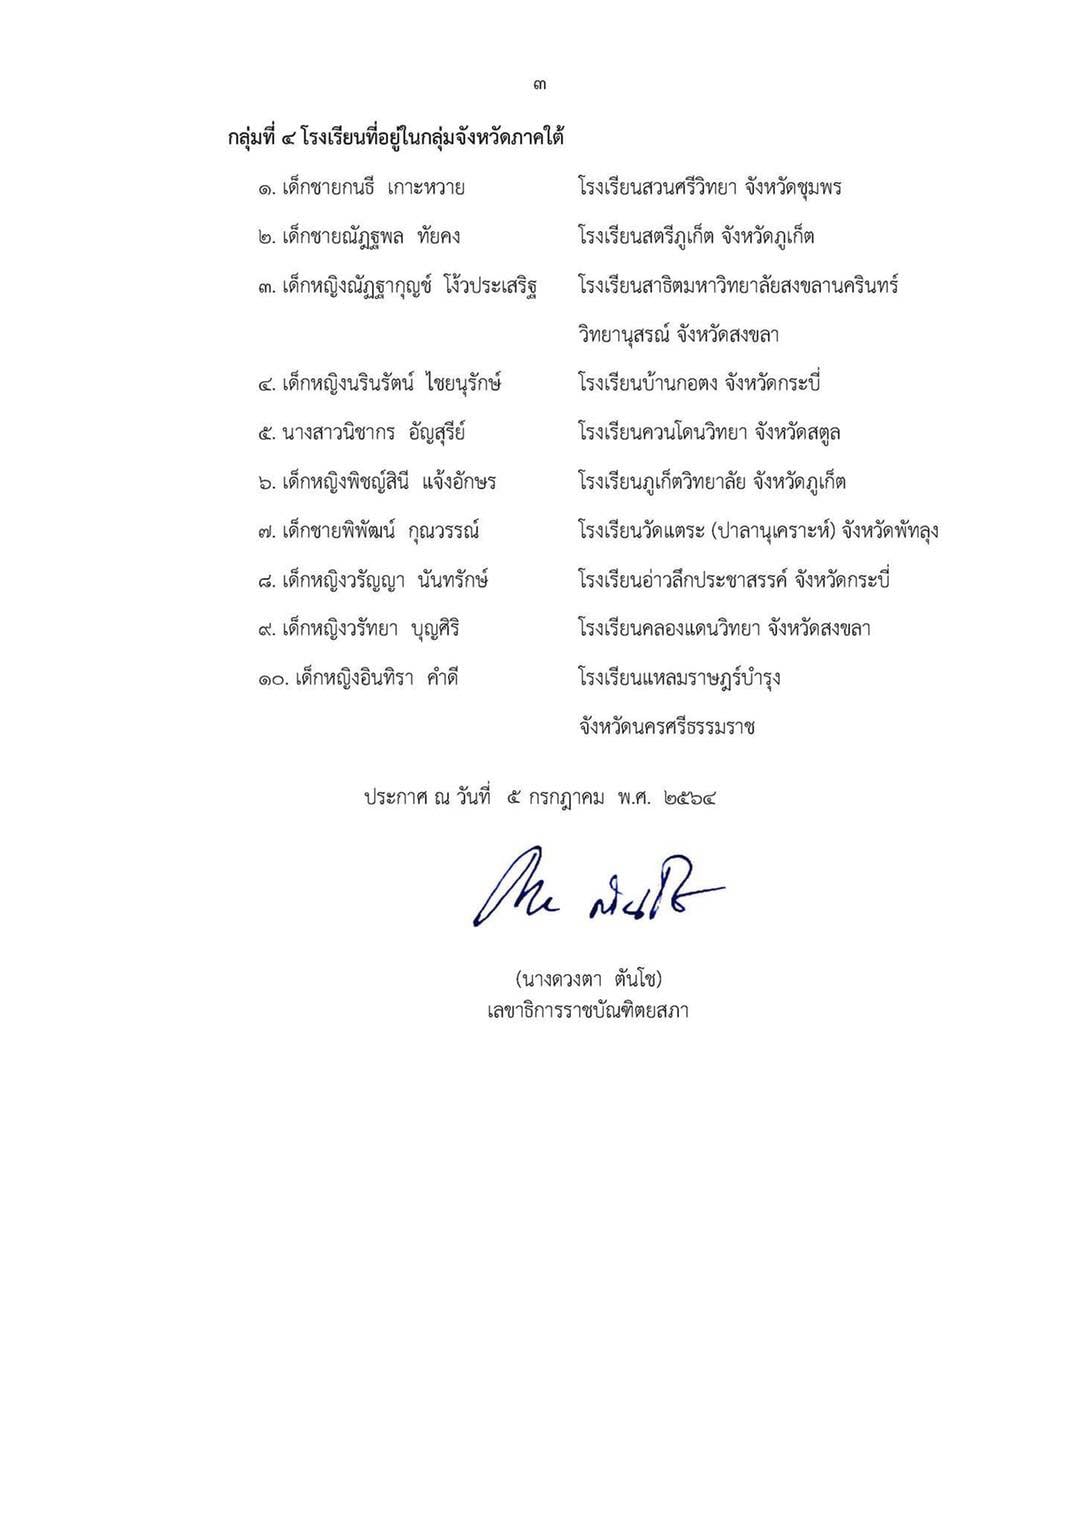 ๓
กลุ่มที่ ๔ โรงเรียนที่อยู่ในกลุ่มจังหวัดภาคใต้
๑. เด็กชายกนธี เกาะหวาย โรงเรียนสวนศรีวิทยา จังหวัดชุมพร
๒. เด็กชายณัฎฐพล ทัยคง โรงเรียนสตรีภูเก็ต จังหวัดภูเก็ต
๓. เด็กหญิงณัฏฐากุญช์ โง้วประเสริฐ โรงเรียนสาธิตมหาวิทยาลัยสงขลานครินทร์
วิทยานุสรณ์ จังหวัดสงขลา
๔. เด็กหญิงนรินรัตน์ ไชยนุรักษ์ โรงเรียนบ้านกอตง จังหวัดกระบี่
๕. นางสาวนิชากร อัญสุรีย์ โรงเรียนควนโดนวิทยา จังหวัดสตูล
๖. เด็กหญิงพิชญ์สินี แจ้งอักษร โรงเรียนภูเก็ตวิทยาลัย จังหวัดภูเก็ต
๗. เด็กชายพิพัฒน์ กุณวรรณ์ โรงเรียนวัดแตระ (ปาลานุเคราะห์) จังหวัดพัทลุง
๘. เด็กหญิงวรัญญา นันทรักษ์ โรงเรียนอ่าวลึกประชาสรรค์ จังหวัดกระบี่
๙. เด็กหญิงวรัทยา บุญศิริ โรงเรียนคลองแดนวิทยา จังหวัดสงขลา
๑๐. เด็กหญิงอินทิรา คำดี โรงเรียนแหลมราษฎร์บำรุง
จังหวัดนครศรีธรรมราช
ประกาศ ณ วันที่ ๕ กรกฎาคม พ.ศ. ๒๕๖๔
(นางดวงตา ตันโช)
เลขาธิการราชบัณฑิตยสภา